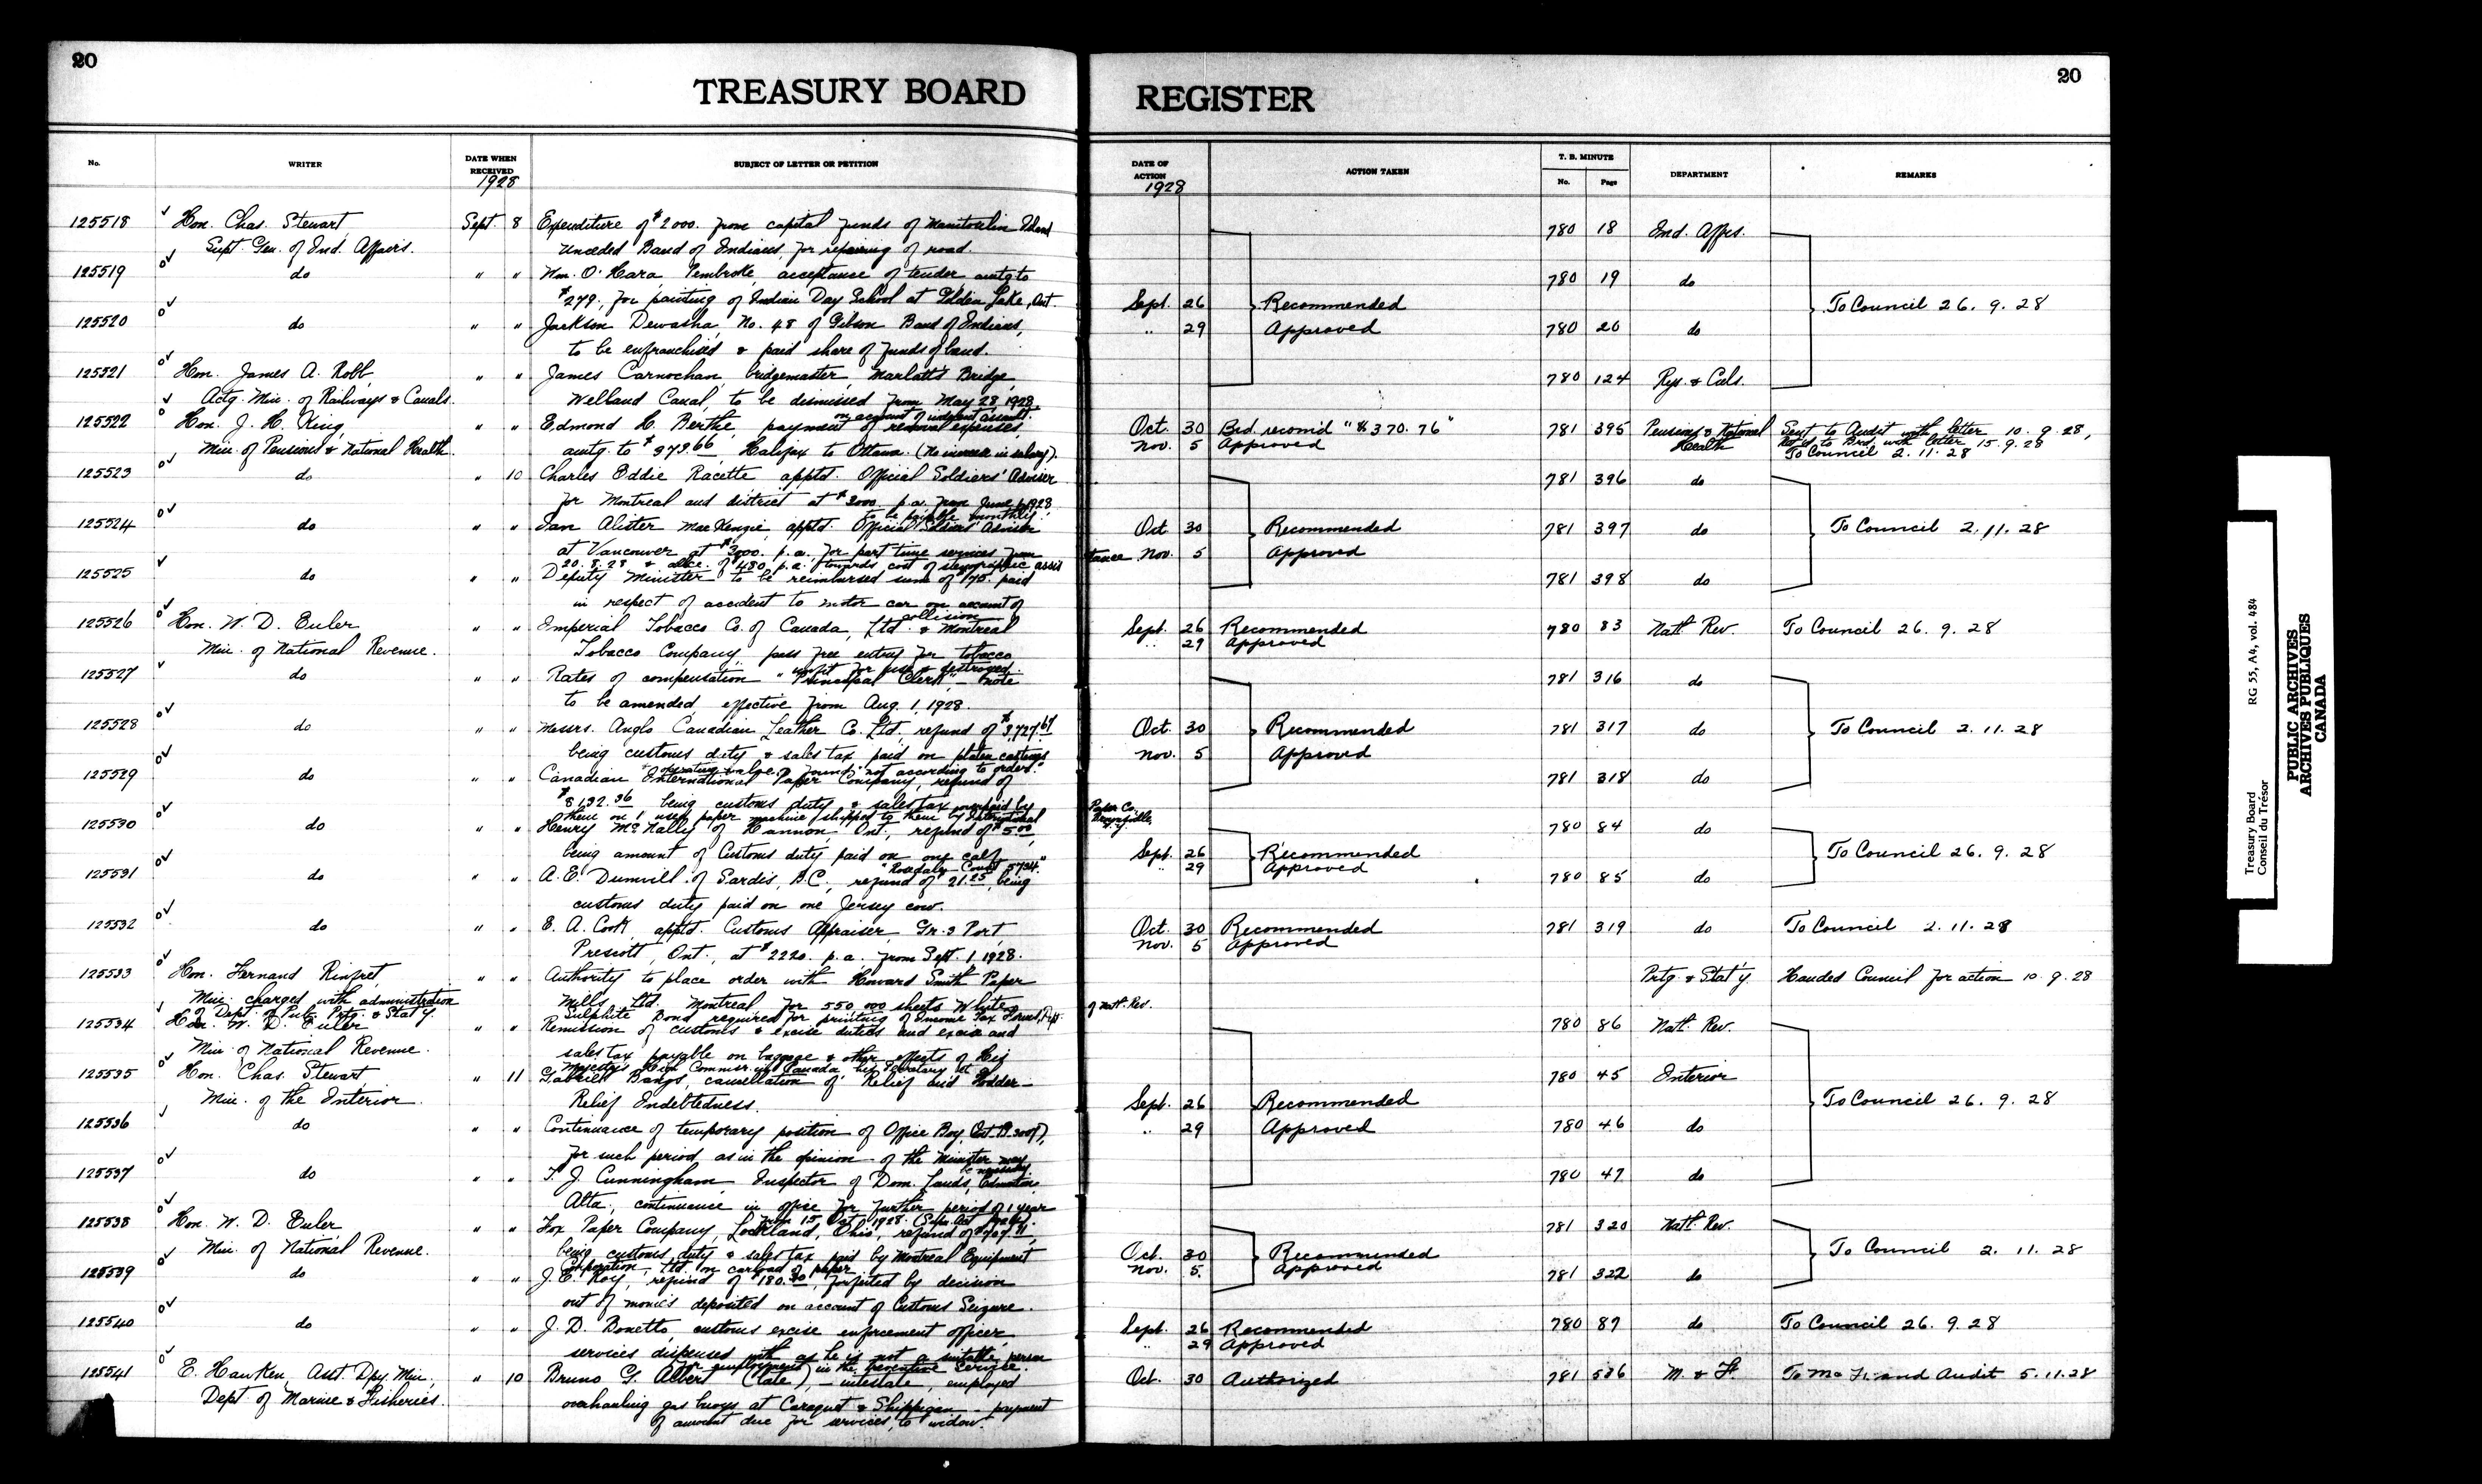 20
TREASURY BOARD
No.
WRITER
DATE WHEN RECEIVED
1928
SUBJECT OF LETTER OR PETITION
125518 Hon. Chas. Stewart, Sept. 8 Expenditure of $2000. from capital funds of Manitoulin Island
Supt. Gen. of Ind. Affairs. Unceded Band of Indians, for repairing of road.
125519 do " " Wm. O'Hara, Pembroke, acceptance of tender amtg to
$279., for painting of Indian Day School at Golden Lake, Ont.
125520 do " " Jackson Dewasha, No. 48 of Gibson Band of Indians,
to be enfranchised & paid share of funds of band.
125521 Hon. James A. Robb, " " James Carnochan, bridgemaster, Marlatt's Bridge,
Actg. Min. of Railways & Canals. Welland Canal, to be dismissed from May 28, 1928,
on account of indecent assault.
125522 Hon. J. H. King, " " Edmond H. Berthe, payment of removal expenses,
Min. of Pensions & National Health. amtg. to $373.66, Halifax to Ottawa. (No increase in salary).
125523 do " 10 Charles Eddie Racette apptd. Official Soldiers' Adviser
for Montreal and district at $3000. p.a. from June 1, 1928,
to be payable monthly.
125524 do " " Ian Alister MacKenzie, apptd. Official Soldiers' Adviser
at Vancouver at $3000. p.a., for part time services from
20.8.28 & allce. of $480. p.a. towards cost of stenographic assis
125525 do " " Deputy Minister to be reimbursed sum of paid
in respect of accident to motor car on account of
collision.
125526 Hon. W. D. Euler " " Imperial Tobacco Co. of Canada, Ltd. & Montreal
Min. of National Revenue. Tobacco Company, pass free entry for tobacco
unfit for use & destroyed.
125527 do " " Rates of compensation "Principal Clerk" - note
to be amended, effective from Aug. 1, 1928.
125528 do " " Messrs. Anglo Canadian Leather Co. Ltd., refund of $3,727.67
being customs duty & sales tax paid on platen castings
& operating valve found "not according to order."
125529 do " " Canadian International Paper Company, refund of
$8,132.36, being customs duty & sales tax overpaid by
them on 1 used paper machine shipped to them by International
125530 do " " Henry McNally of Hannon, Ont., refund of $5.00,
being amount of Customs duty paid on one calf,
"Rosedale Count 5734."
125531 do " " A. E. Dumvill of Sardis, B.C., refund of $21.25, being
customs duty paid on one Jersey cow.
125532 do " " E. A. Cook, apptd. Customs Appraiser, Gr. 3 Port
Prescott, Ont., at $2220. p.a. from Sept. 1, 1928.
125533 Hon. Fernand Rinfret, " " Authority to place order with Howard Smith Paper
Min. charged with administration Mills Ltd. Montreal for 550,000 sheets White
of Dept. of Pub. Prtg. & Stat'y. Sulphite Bond required for printing of Income Tax Forms, Dept.
125534 Hon. W. D. Euler " " Remission of customs & excise duties and excise and
Min. of National Revenue. sales tax payable on baggage & other effects of His
Majesty's High Commsr. in Canada, his Secretary
125535 Hon. Chas. Stewart, " 11 Gabriel Bangs, cancellation of Relief and Fodder
Min. of the Interior. Relief Indebtedness.
125536 do " " Continuance of temporary position of Office Boy,
for such period as in the opinion of the Minister may
be necessary.
125537 do " " T. J. Cunningham, Inspector of Dom. Lands, Edmonton,
Alta., continuance in office for further period of 1 year
from 15 Oct. 1928.
125538 Hon. W. D. Euler, " " Fox Paper Company, Lockland, Ohio, refund of
Min. of National Revenue. being customs duty & sales tax paid by Montreal Equipment
Corporation, Ltd. on carload of paper
125539 do " " J. E. Roy, refund of $180.30, forfeited by decision
out of monies deposited on account of Customs Seizure.
125540 do " " J. D. Bonetto, customs excise enforcement officer
services dispensed with as he is not a suitable person
for employment in the Preventive Service.
125541 E. Hawken, Asst. Dpy. Min., " 10 Bruno G. Albert (late), - intestate, employed
Dept. of Marine & Fisheries. overhauling gas buoys at Caraquet & Shippigan - payment
of amount due for services, to widow.
REGISTER
20
DATE OF ACTION
1928
ACTION TAKEN
T. B. MINUTE
No. Page
DEPARTMENT
REMARKS
780 18 Ind. Affrs.
780 19 do
Sept. 26 Recommended To Council 26. 9. 28
" 29 Approved 780 20 do
780 124 Rys. & Cals.
Oct. 30 Brd. recomd "$370.76" 781 395 Pensions & National Health Sent to Audit with letter 10. 9. 28,
Nov. 5 Approved Ret'd to Brd. with letter 15. 9. 28
To Council 2. 11. 28
781 396 do
Oct. 30 Recommended 781 397 do To Council 2. 11. 28
tance Nov. 5 Approved
781 398 do
Sept. 26 Recommended 780 83 Natl. Rev. To Council 26. 9. 28
" 29 Approved
781 316 do
Oct. 30 Recommended 781 317 do To Council 2. 11. 28
Nov. 5 Approved
781 318 do
Paper Co.
780 84 do
Sept. 26 Recommended To Council 26. 9. 28
" 29 Approved
780 85 do
Oct. 30 Recommended 781 319 do To Council 2. 11. 28
Nov. 5 Approved
Prtg. & Stat'y. Handed Council for action 10. 9. 28
of Natl. Rev.
780 86 Natl. Rev.
780 45 Interior
Sept. 26 Recommended To Council 26. 9. 28
" 29 Approved 780 46 do
780 47 do
781 320 Natl. Rev.
Oct. 30 Recommended To Council 2. 11. 28
Nov. 5. Approved
781 322 do
Sept. 26 Recommended 780 87 do To Council 26. 9. 28
" 29 Approved
Oct. 30 Authorized 781 536 M. & F. To M & F. and Audit 5. 11. 28
Treasury Board RG 55, A4, vol. 484
Conseil du Trésor
PUBLIC ARCHIVES
ARCHIVES PUBLIQUES
CANADA